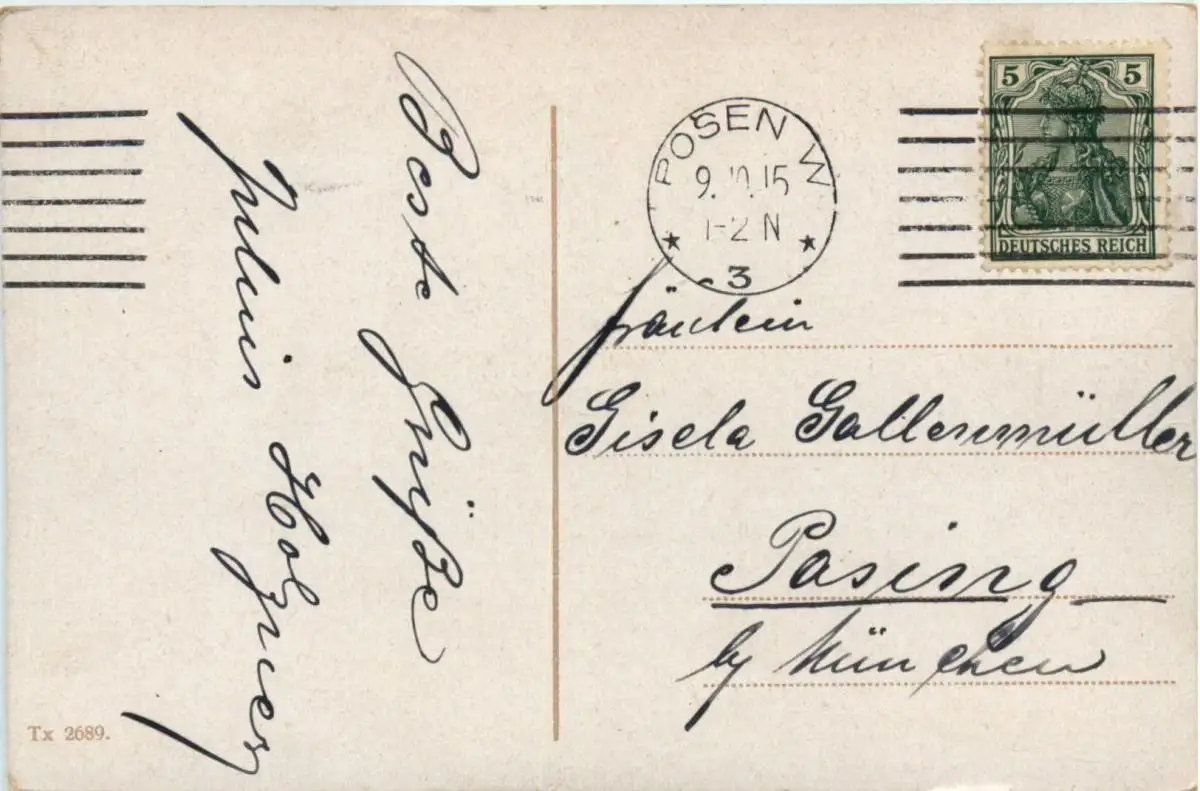 Beste Grüße
Julius Holzner
Tx 2689.
POSEN W
9. 10. 15
1-2 N
3
5 5
DEUTSCHES REICH
Fräulein
Gisela Gallenmüller
Pasing
by München